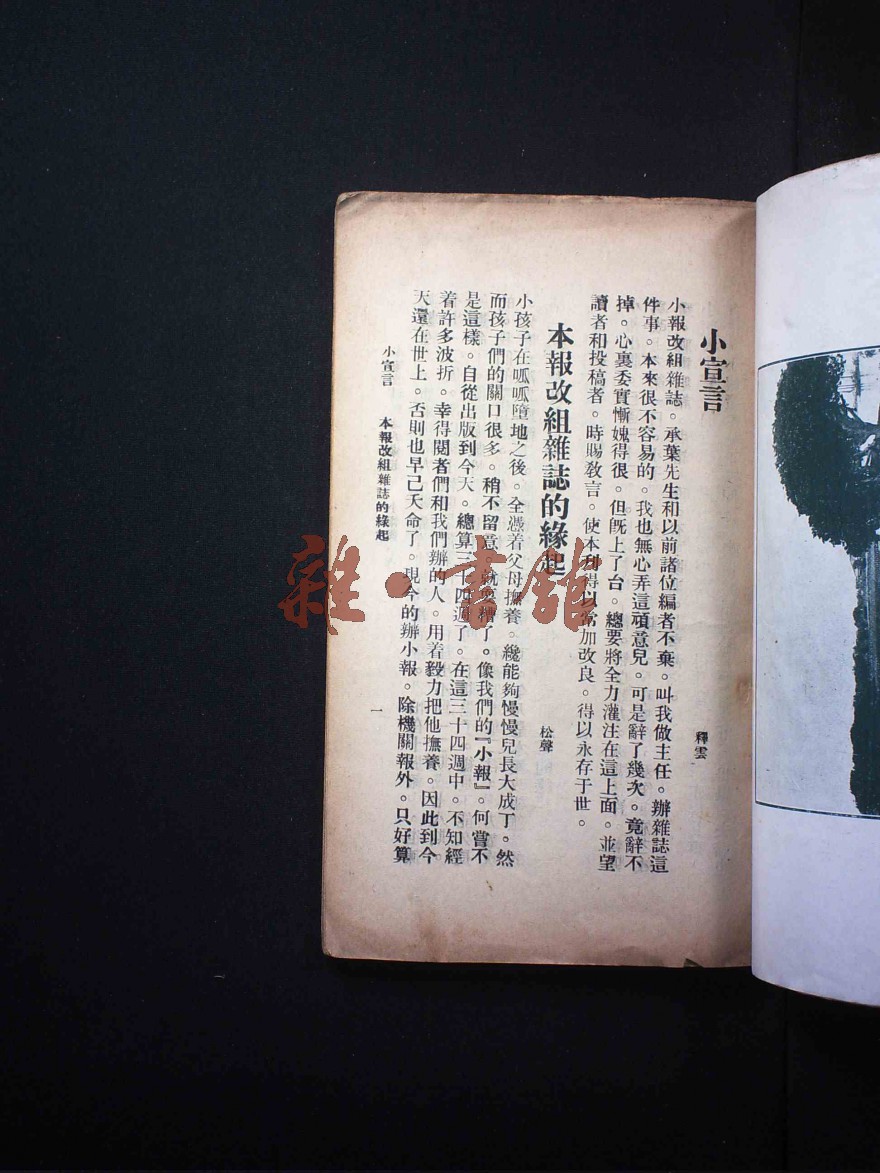 小宣言
釋雲
小報改組雜誌。承葉先生和以前諸位編者不棄。叫我做主任。辦雜誌這
件事。本來很不容易的。我也無心弄這頑意兒。可是辭了幾次。竟辭不
掉。心裏委實慚媿得很。但旣上了台。總要將全力灌注在這上面。並望
讀者和投稿者。時賜敎言。使本刋得以常加改良。得以永存于世。
本報改組雜誌的緣起
松聲
小孩子在呱呱墮地之後。全憑着父母撫養。纔能夠慢慢兒長大成丁。然
而孩子們的關口很多。稍不留意。就要糟了。像我們的『小報』。何嘗不
是這樣。自從出版到今天。總算三十四週了。在這三十四週中。不知經
着許多波折。幸得閱者們和我們辦的人。用着毅力把他撫養。因此到今
天還在世上。否則也早已夭命了。現今的辦小報。除機關報外。只好算
小宣言　本報改組雜誌的緣起
一
雜·書館